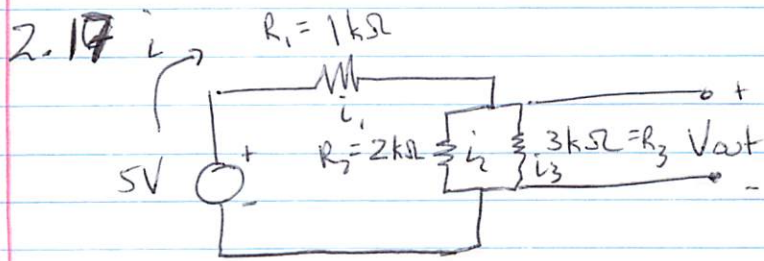 2.17 i
R₁ = 1kΩ
i₁
R₂ = 2kΩ i₂ i₃ 3kΩ = R₃ Vout
5V
+
-
+
-